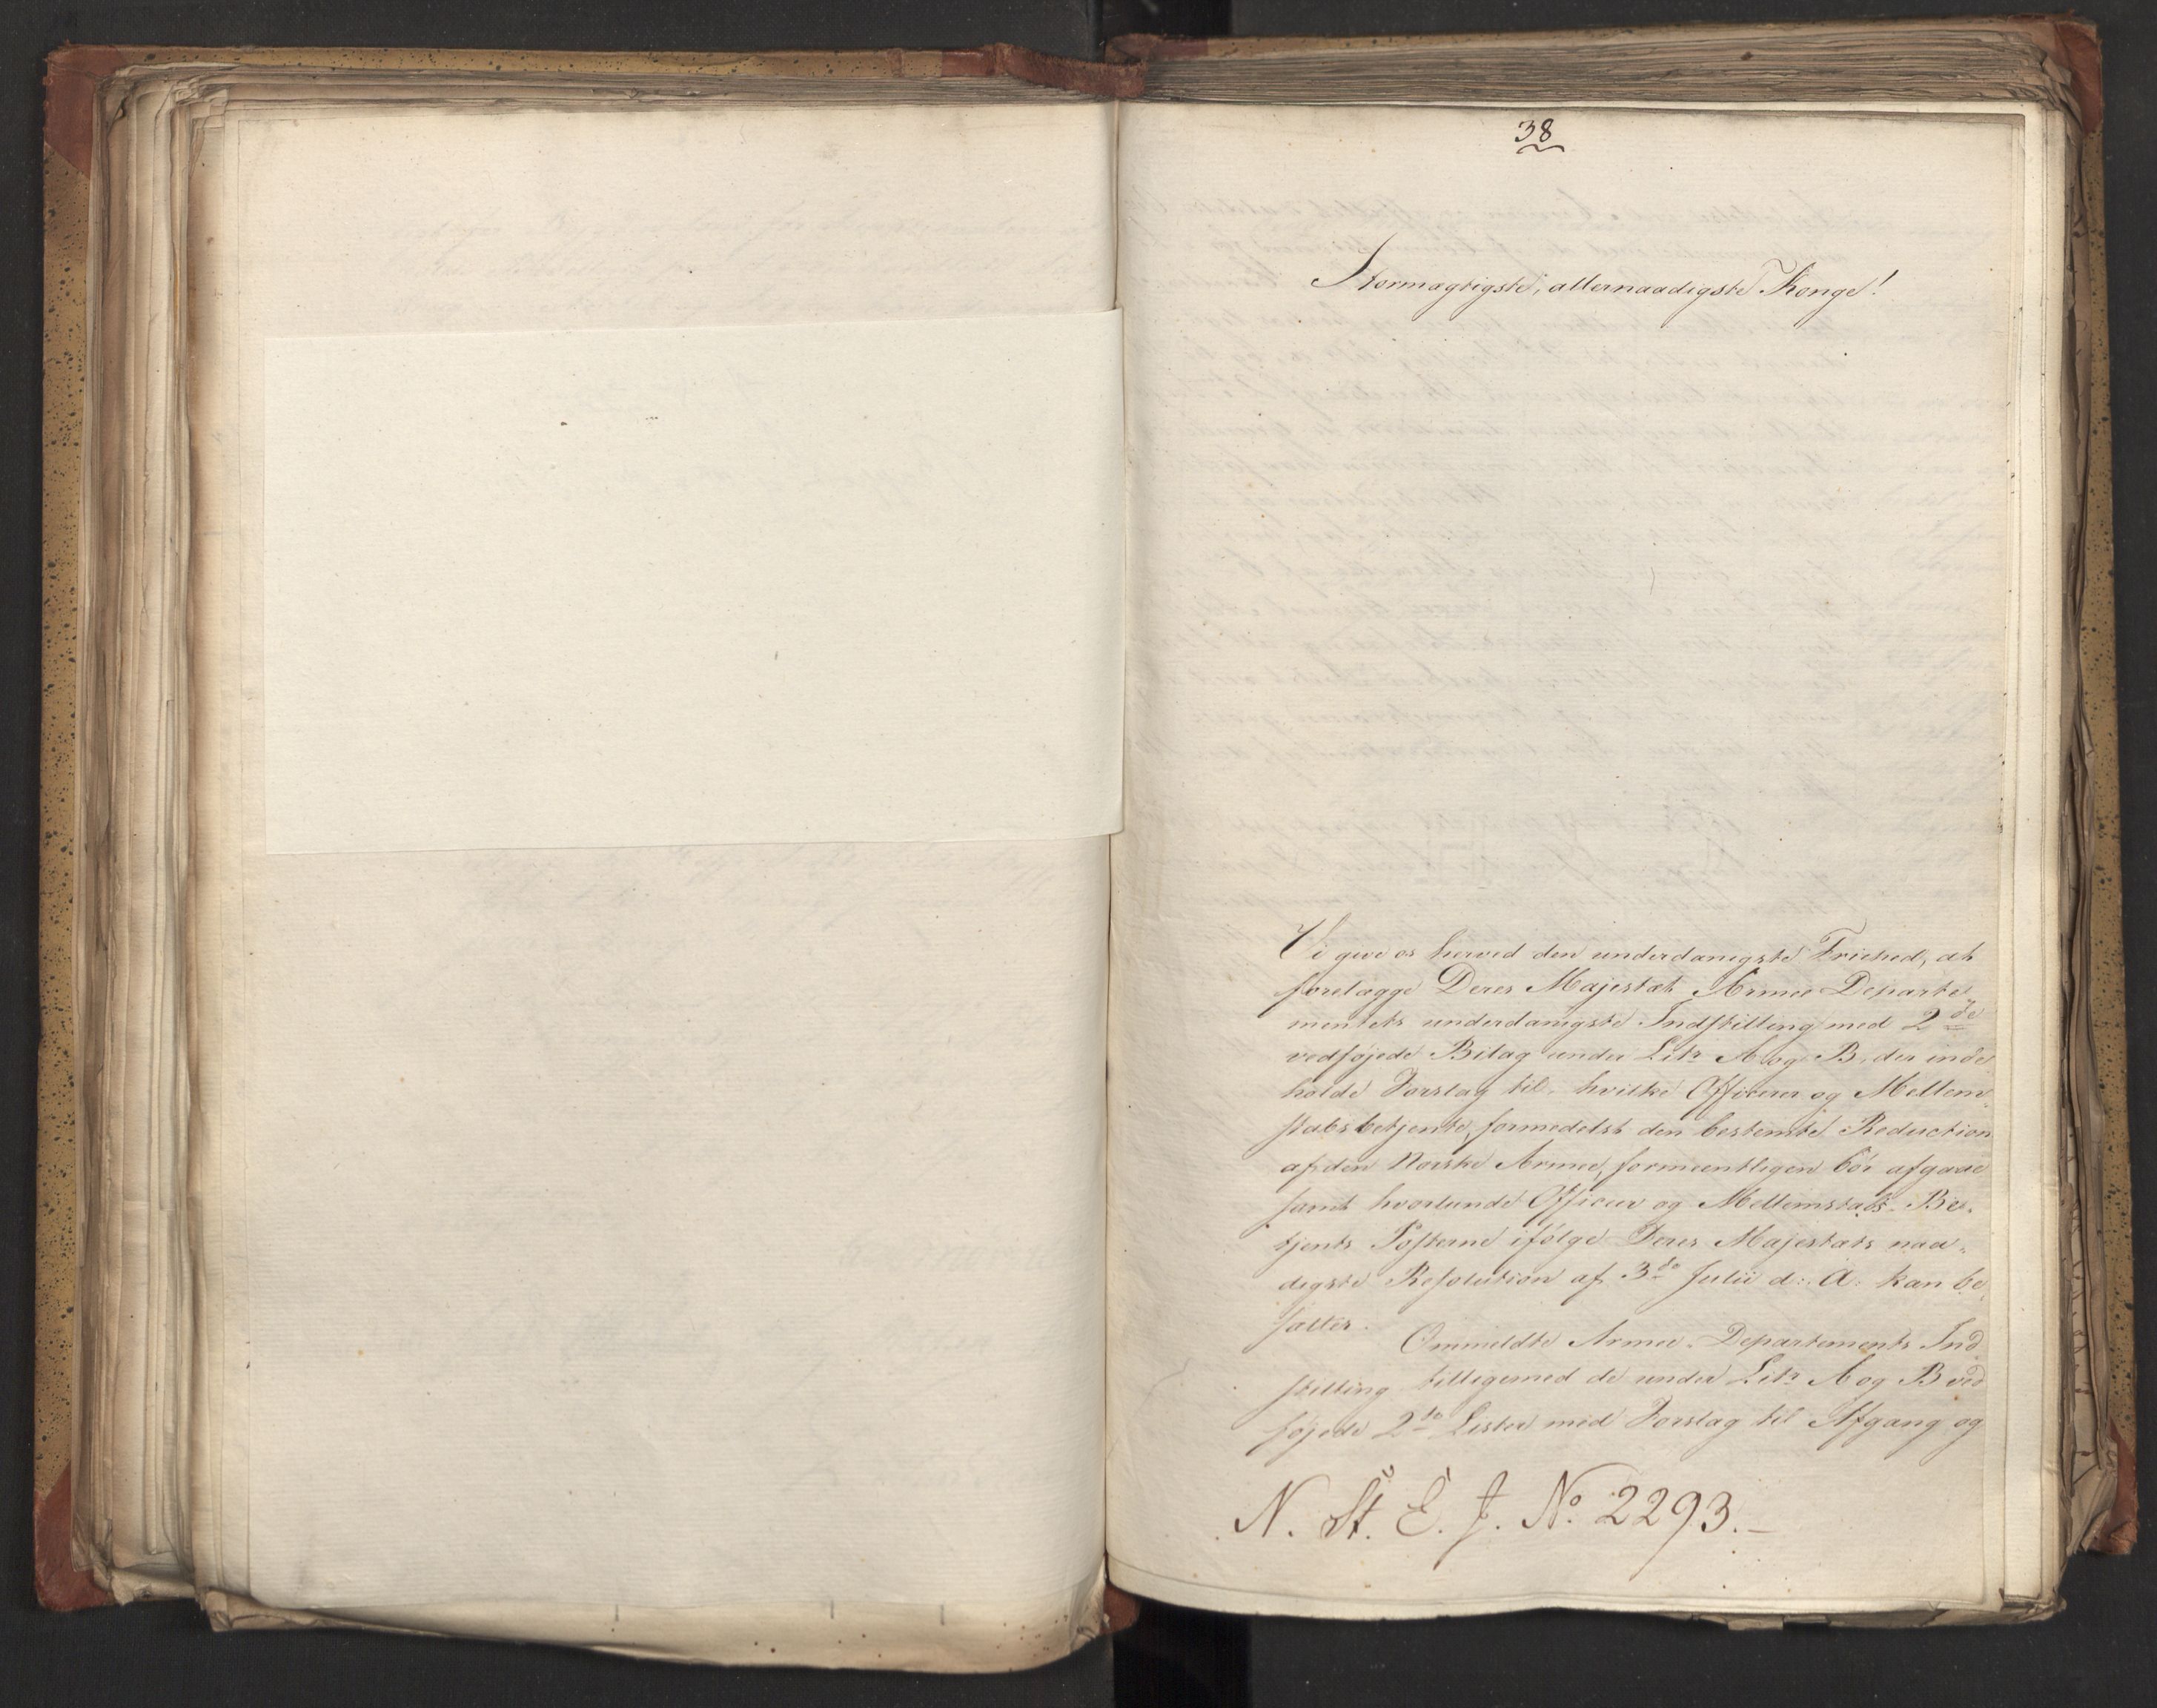 38
Stormægtigste, allernaadigste Konge!
Vi give os herved den underdanigste Friehed, at
forelægge Deres Majestæt Armee Departe
mentets underdanigste Indstilling med 2de
vedføjede Bilag under Litr A og B, der inde
holde Forslag til hvilke Officerer og Mellem
stabsbetjente, formedelst den bestemte Reduction
af den Norske Armee, formeentligen bör afgaae
samt hvorlunde Officeer og Mellemstabs-Be-
tjents Posterne ifølge Deres Majestæts naa-
digste Resolution af 3die Julii d: A: kan be
sættes.
Ommeldte Armee-Departements Ind
stilling tilligemed de under Litr A og B ved
føjede 2de Lister med Forslag til Afgang og
N. St. E. J. No. 2293.